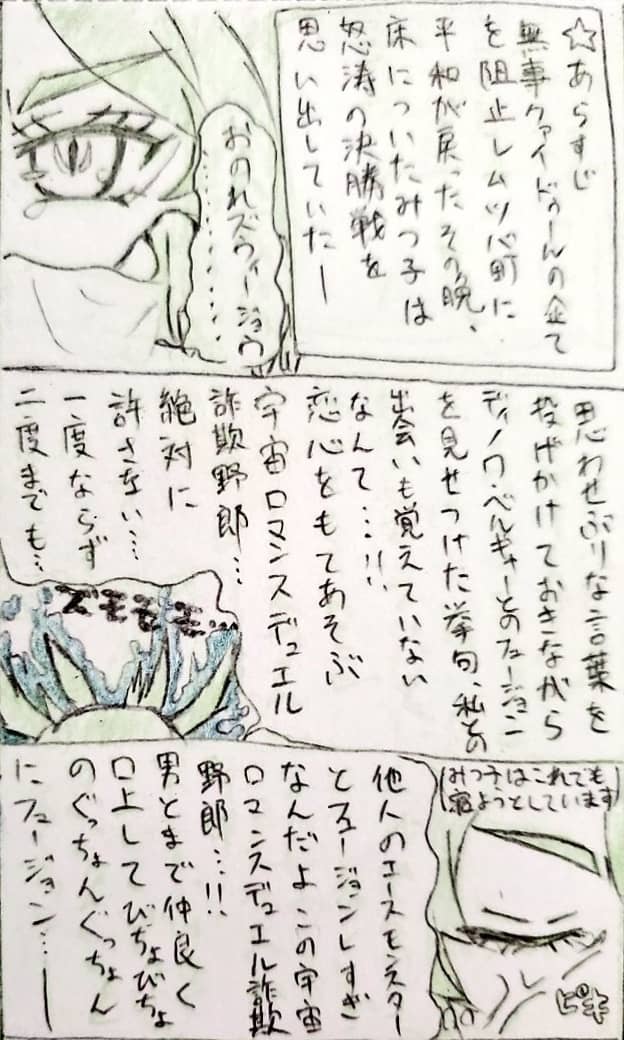 ☆あらすじ
無事クァイドゥールの企て
を阻止しムツバ町に
平和が戻ったその晩、
床についたみつ子は
怒涛の決勝戦を
思い出していたー
おのれズウィージョウ
………
思わせぶりな言葉を
投げかけておきながら
ディノワ・ベルギャーとのフュージョン
を見せつけた挙句、私との
出会いも覚えていない
なんて…!!
恋心をもてあそぶ
宇宙ロマンスデュエル
詐欺野郎…
絶対に
許さない…
一度ならず
二度までも…
ズモモモ…
(みつ子はこれでも
寝ようとしています)
他人のエースモンスター
とフュージョンしすぎ
なんだよこの宇宙
ロマンスデュエル詐欺
野郎…!!
男とまで仲良く
口上してびちょびちょ
のぐっちょんぐっちょん
にフュージョン…ー
ピキ